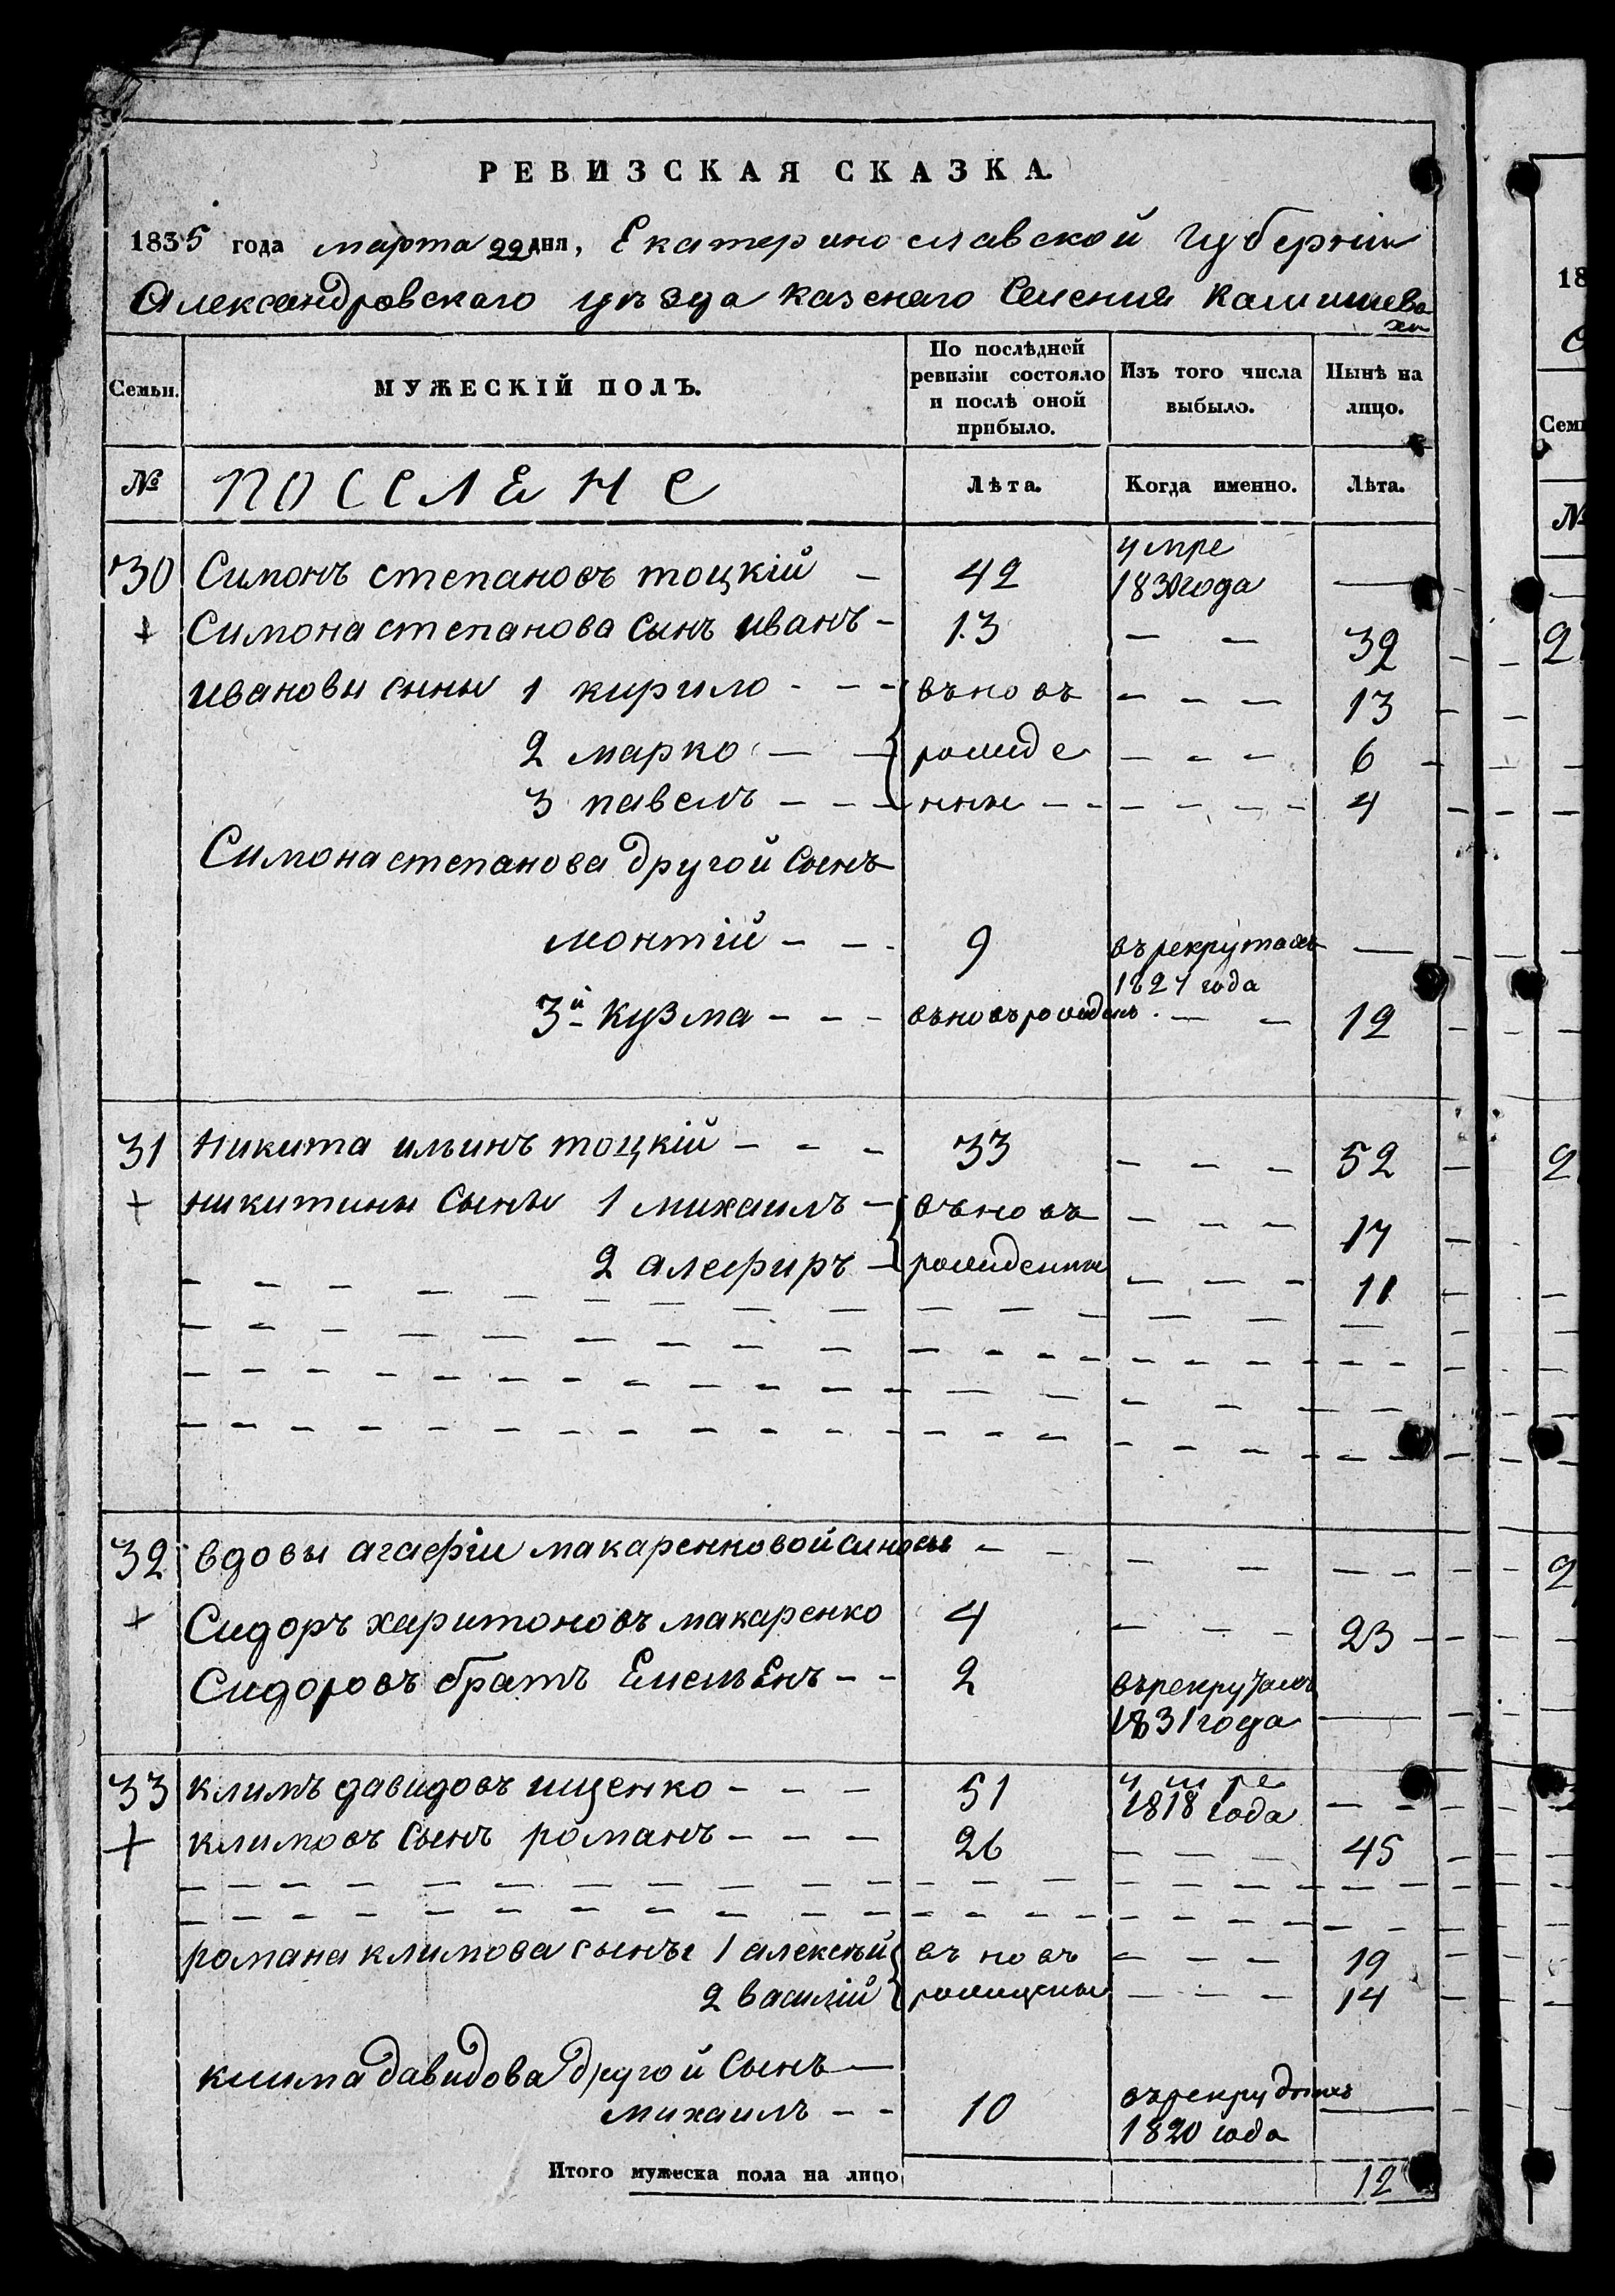 РЕВИЗСКАЯ СКАЗКА.
1835 года марта 22 дня, Екатеринославской Губернiи
Александровского уѣзда казенаго Селения Камышева
хи
Семьи.
МУЖЕСКІЙ ПОЛЪ.
По послѣдней ревизіи состояло и послѣ оной прибыло.
Изъ того числа выбыло.
Нынѣ на лицо.
№ ПОСЕЛЕНЕ Лѣта. Когда именно. Лѣта.
30 Симонъ степановъ тоцкій 42 умре 1830 года
+ Симона степанова сынъ иванъ 13 32
ивановы сыны 1 кирило въновь 13
2 марко рожде 6
3 павелъ нны 4
Симона степанова другой сынъ
монтій 9 въ рекрутахъ 1827 года
3й кузма въновь рожденъ 12
31 Никита ильинъ тоцкій 33 52
+ никитины сыны 1 михаилъ въновь 17
2 алефиръ рожденны 11
32 вдовы агафіи макаренковой
+ Сидоръ харитоновъ макаренко 4 23
Сидоровъ братъ Емельенъ 2 въ рекрутахъ 1831 года
33 климъ давидовъ ищенко 51 умре 1818 года
+ климовъ сынъ романъ 26 45
романа климова сыны 1 алексѣй въ новь 19
2 василій рожденны 14
клима давидова другой сынъ
михаилъ 10 въ рекрутахъ 1820 года
Итого мужеска пола на лицо 12
18
Семь
№
2
2
2